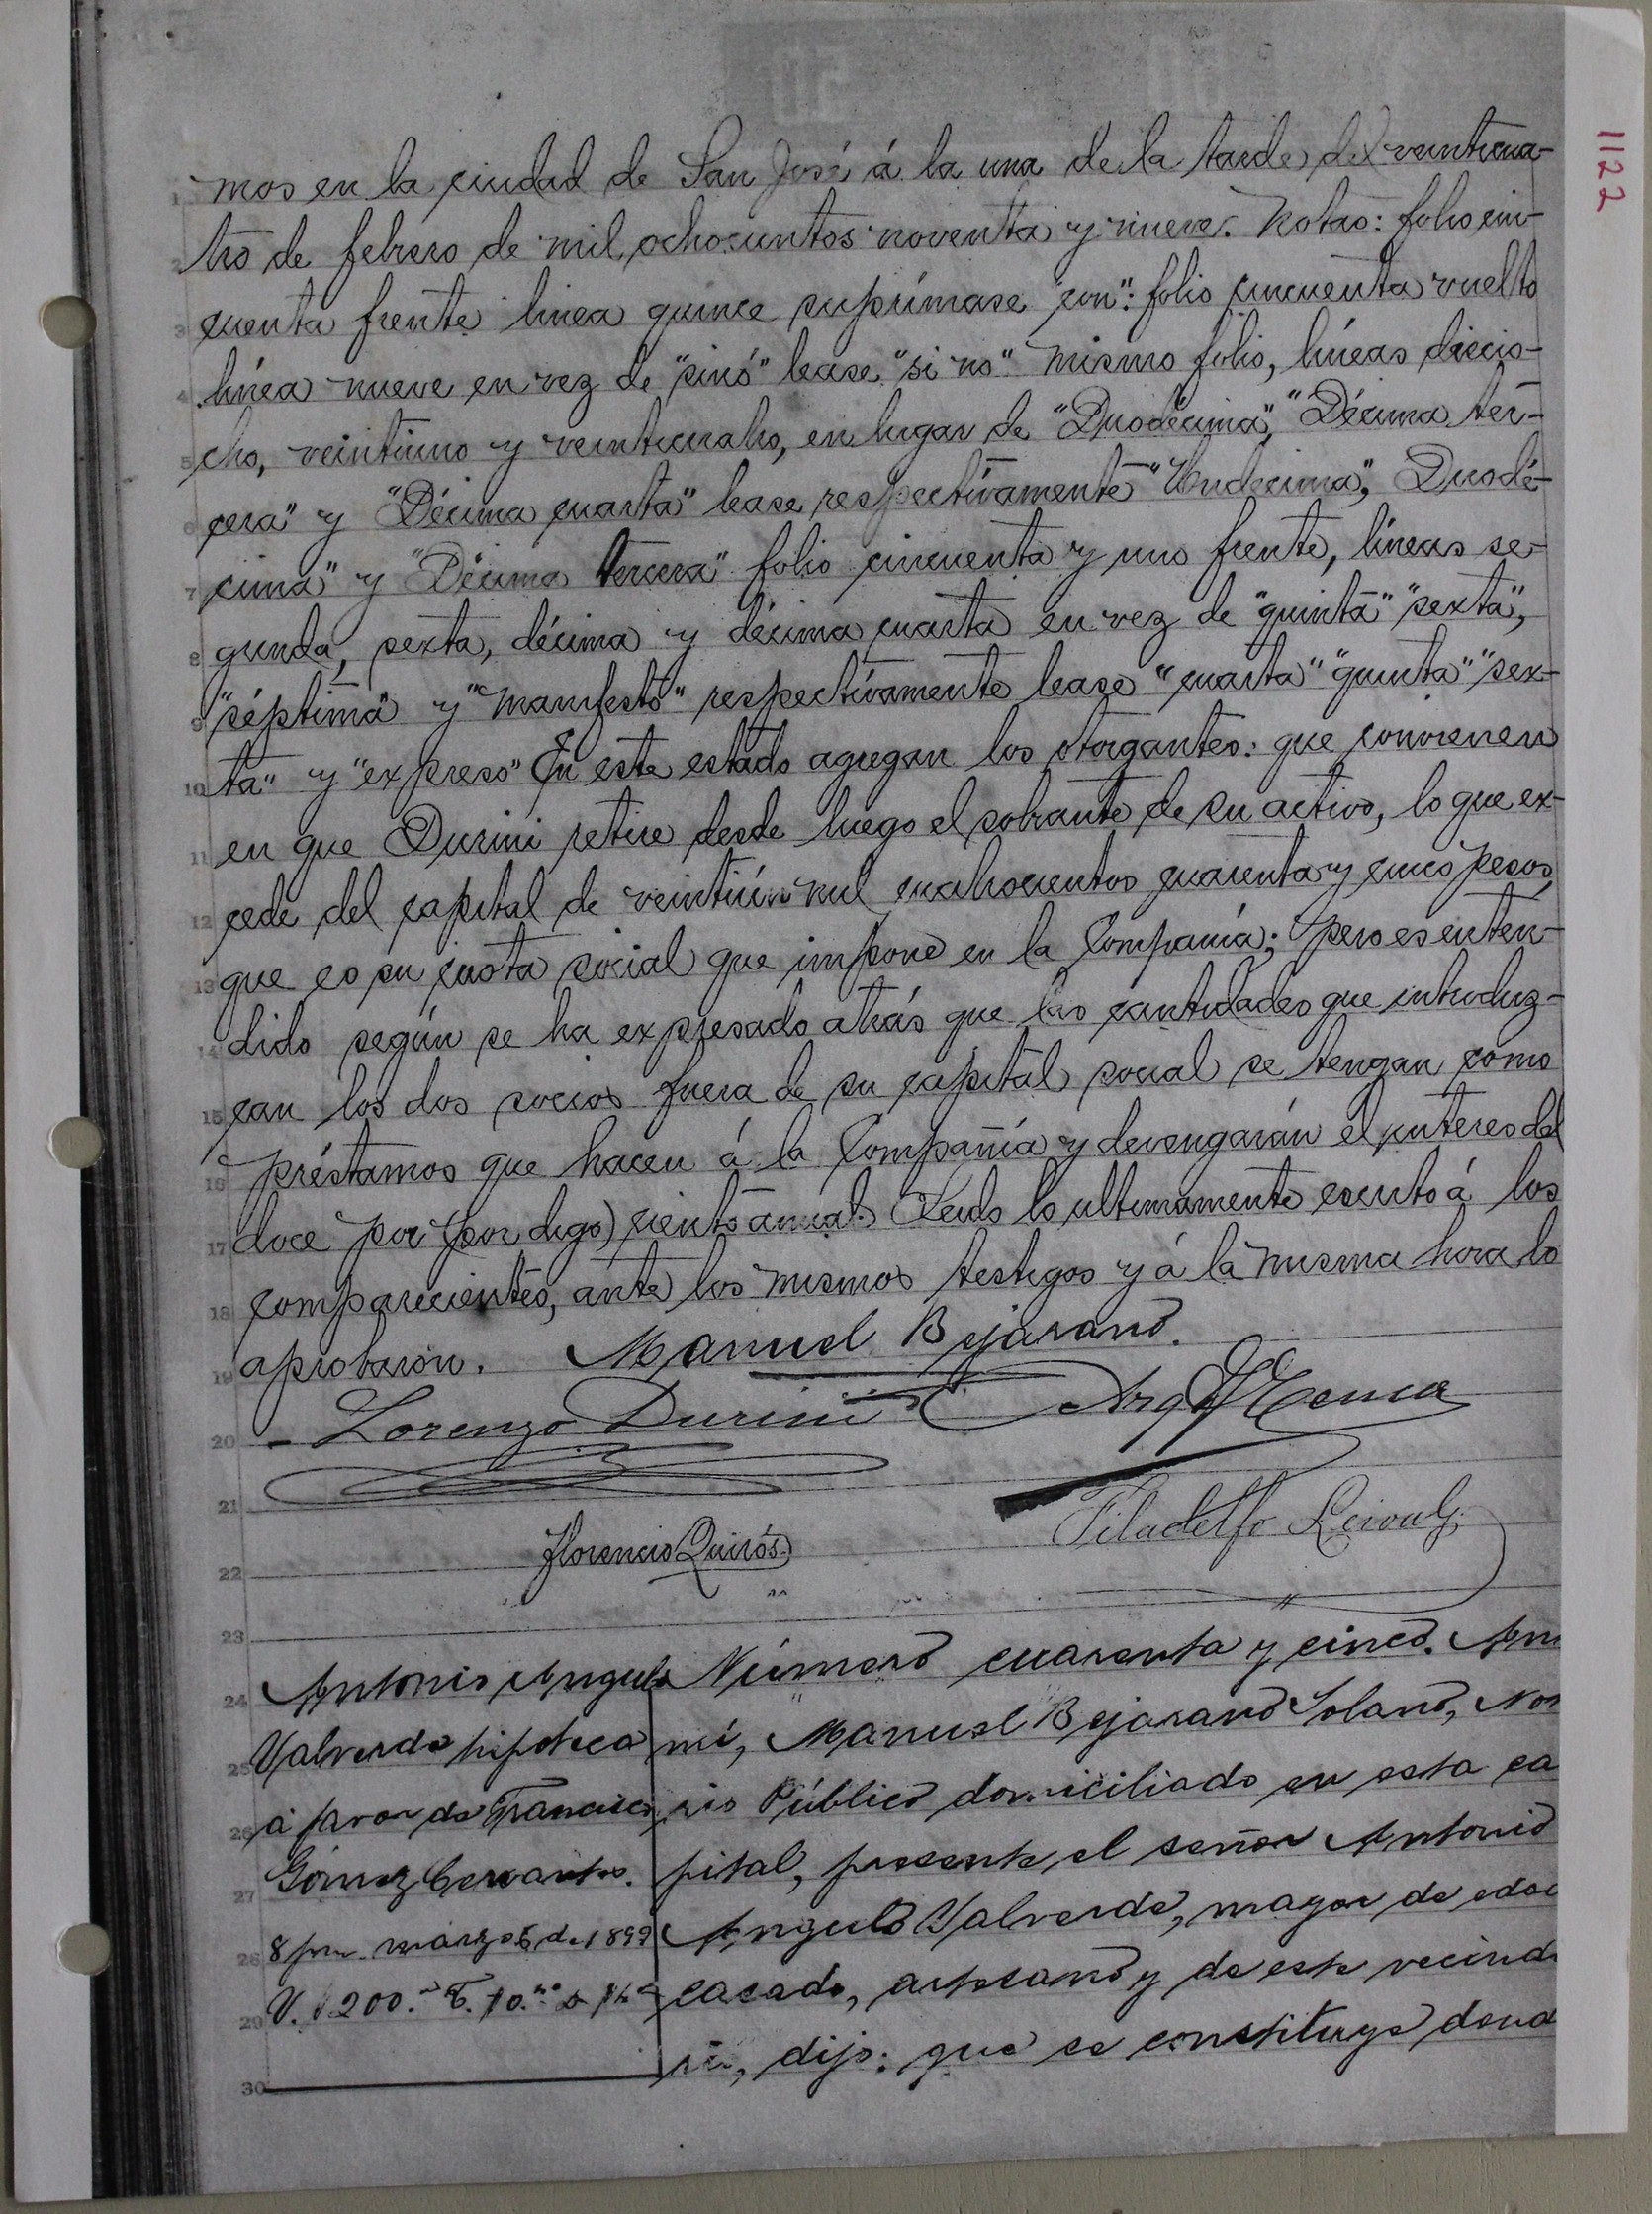 1122
1 mos en la ciudad de San José á la una de la tarde del veinticua-
2 tro de febrero de mil ochocientos noventa y nueve. Notas: folio cin-
3 cuenta frente linea quince suprímase "con": folio cincuenta vuelto
4 línea nueve en vez de "sinó" lease "si no" mismo folio, líneas diecio-
5 cho, veintiuno y veinticuatro, en lugar de "Duodécima", "Décima ter-
6 cera" y "Décima cuarta" lease respectivamente "Undecima", Duodé-
7 cima" y "Décima tercera" folio cincuenta y uno frente, líneas se-
8 gunda, sexta, décima y décima cuarta en vez de "quinta" "sexta",
9 "séptima" y "manifesto" respectivamente lease "cuarta" "quinta" "sex-
10 ta" y "expreso" En este estado agregan los otorgantes: que convienen
11 en que Durini retire desde luego el sobrante de su activo, lo que ex-
12 cede del capital de veintiún mil cuatrocientos cuarenta y cinco pesos,
13 que es su cuota social que impone en la Compañía; pero es enten-
14 dido según se ha expresado atrás que las cantidades que introduz-
15 can los dos socios fuera de su capital social se tengan como
16 préstamos que hacen á la Compañía y devengarán el interes del
17 doce por (por digo) ciento anual. Leido lo ultimamente escrito á los
18 comparecientes, ante los mismos testigos y á la misma hora lo
19 aprobaron. Manuel Bejarano.
20 Lorenzo Durini
21
22 Florencio Quirós. Filadelfo
23
24 Antonio Angulo Número cuarenta y cinco. An
25 Valverde hipoteca mí, Manuel Bejarano Solano, No
26 á favor de Francisco rio Público domiciliado en esta ca
27 Gómez Cervantes. pital, presente el señor Antonio
28 8 pm. marzo 6 de 1899 Angulo Valverde, mayor de edad
29 V. 200. casado, artesano y de este vecinda
30 rio, dijo: que se constituye deud